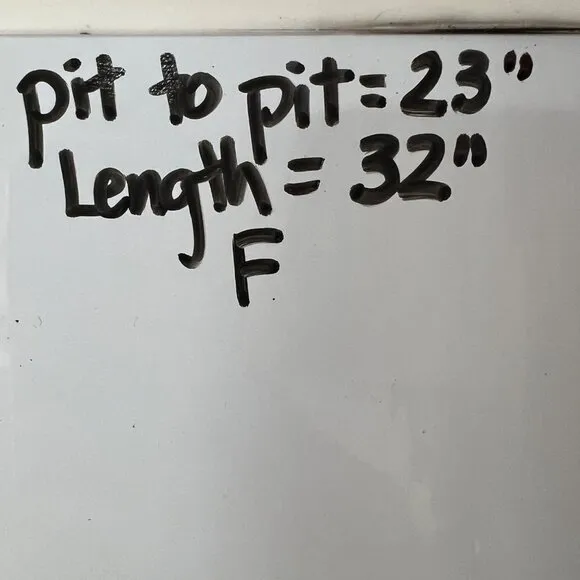 pit to pit = 23"
Length = 32"
F